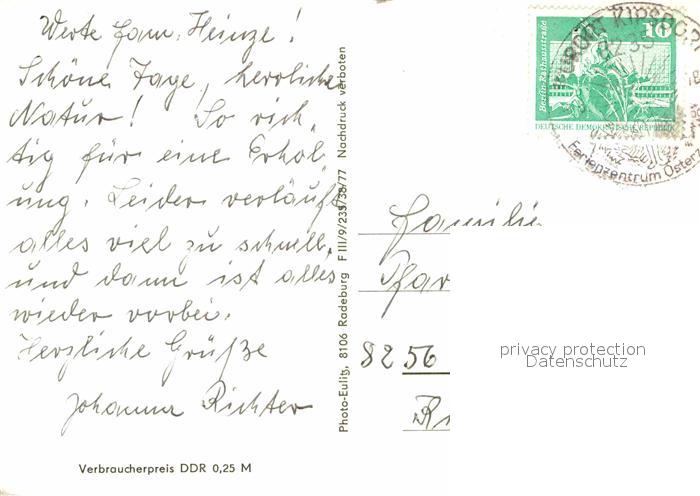 Werte Fam. Heinze!
Schöne Tage, herrliche
Natur! So rich„
tig für eine Erhol„
ung. Leider verläuft
alles viel zu schnell,
und dann ist alles
wieder vorbei.
Herzliche Grüße
Johanna Richter
Verbraucherpreis DDR 0,25 M
Photo-Eulitz, 8106 Radeburg F III/9/235/38/77 Nachdruck verboten
Berlin-Rathausstraße
10
DEUTSCHE DEMOKRATISCHE REPUBLIK
KURORT KIPSD
Ferienzentrum Osterz
Familie
Pfar
8256
privacy protection
Datenschutz